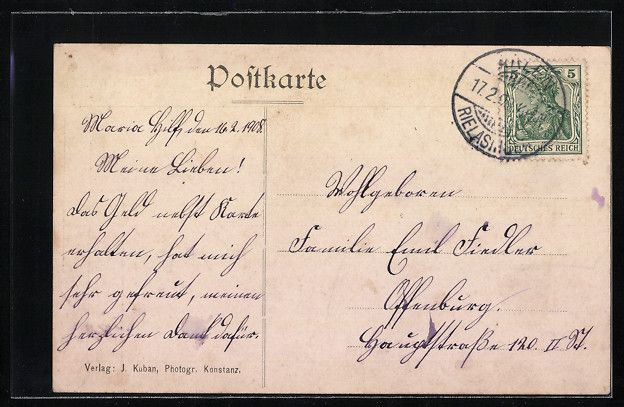 Postkarte
17.2.
RIELASI
5
DEUTSCHES REICH
Maria Hilf, den 16.2.1908.
Meine Lieben!
Das Geld nebst Karte
erhalten, hat mich
sehr gefreut, meinen
herzlichen Dank dafür.
Wohlgeboren
Familie Emil Fiedler
Offenburg.
Hauptstraße 120. II St.
Verlag: J. Kuban, Photogr. Konstanz.